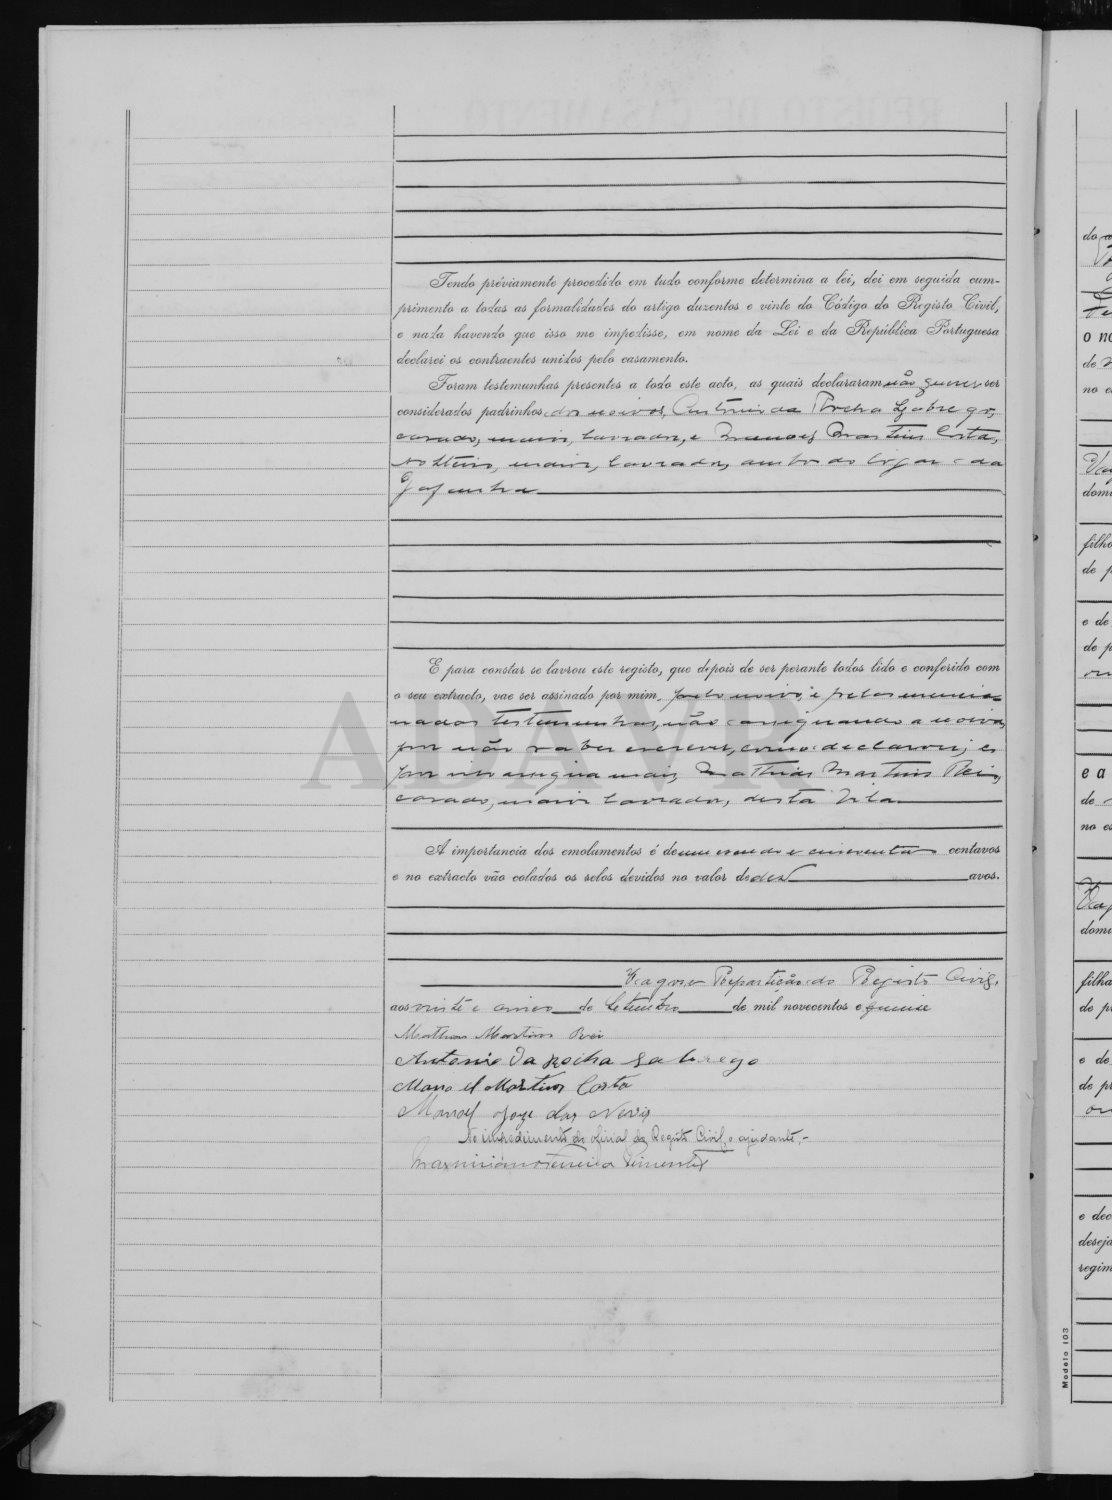 Tendo préviamente procedido em tudo conforme determina a lei, dei em seguida cum-
primento a todas as formalidades do artigo duzentos e vinte do Código do Registo Civil,
e nada havendo que isso me impedisse, em nome da Lei e da República Portuguesa
declarei os contraentes unidos pelo casamento.
Foram testemunhas presentes a todo este acto, as quais declararam não querer ser
considerados padrinhos dos noivos, Antonio da Rocha Labrego,
casado, maior, lavrador, e Manoel Martins Costa,
solteiro, maior, lavrador, ambos do logar da
Gafanha
E para constar se lavrou este registo, que depois de ser perante todos lido e conferido com
o seu extracto, vae ser assinado por mim, pelo noivo e pelas mencio-
nadas testemunhas, não assignando a noiva
por não saber escrever, como declarou, e
por isso assigna mais Mathias Martins Rei,
casado, maior lavrador, desta Vila
A importancia dos emolumentos é de um escudo e cincoenta centavos
e no extracto vão colados os selos devidos no valor de dez avos.
Vagos e Repartição do Registo Civil,
aos vinte e cinco de Setembro de mil novecentos e quinze
Mathias Martins Rei
Antonio da Rocha Labrego
Manoel Martins Costa
Manoel Joze das Neves
No impedimento do oficial do Registo Civil, o ajudante,-
Pimentel
ADAVR
do
o no
de
no e
domi
filho
de p
e de
de p
e a
de
no es
domi
filha
de p
e de
de p
e dec
deseja
regim
Modelo 103